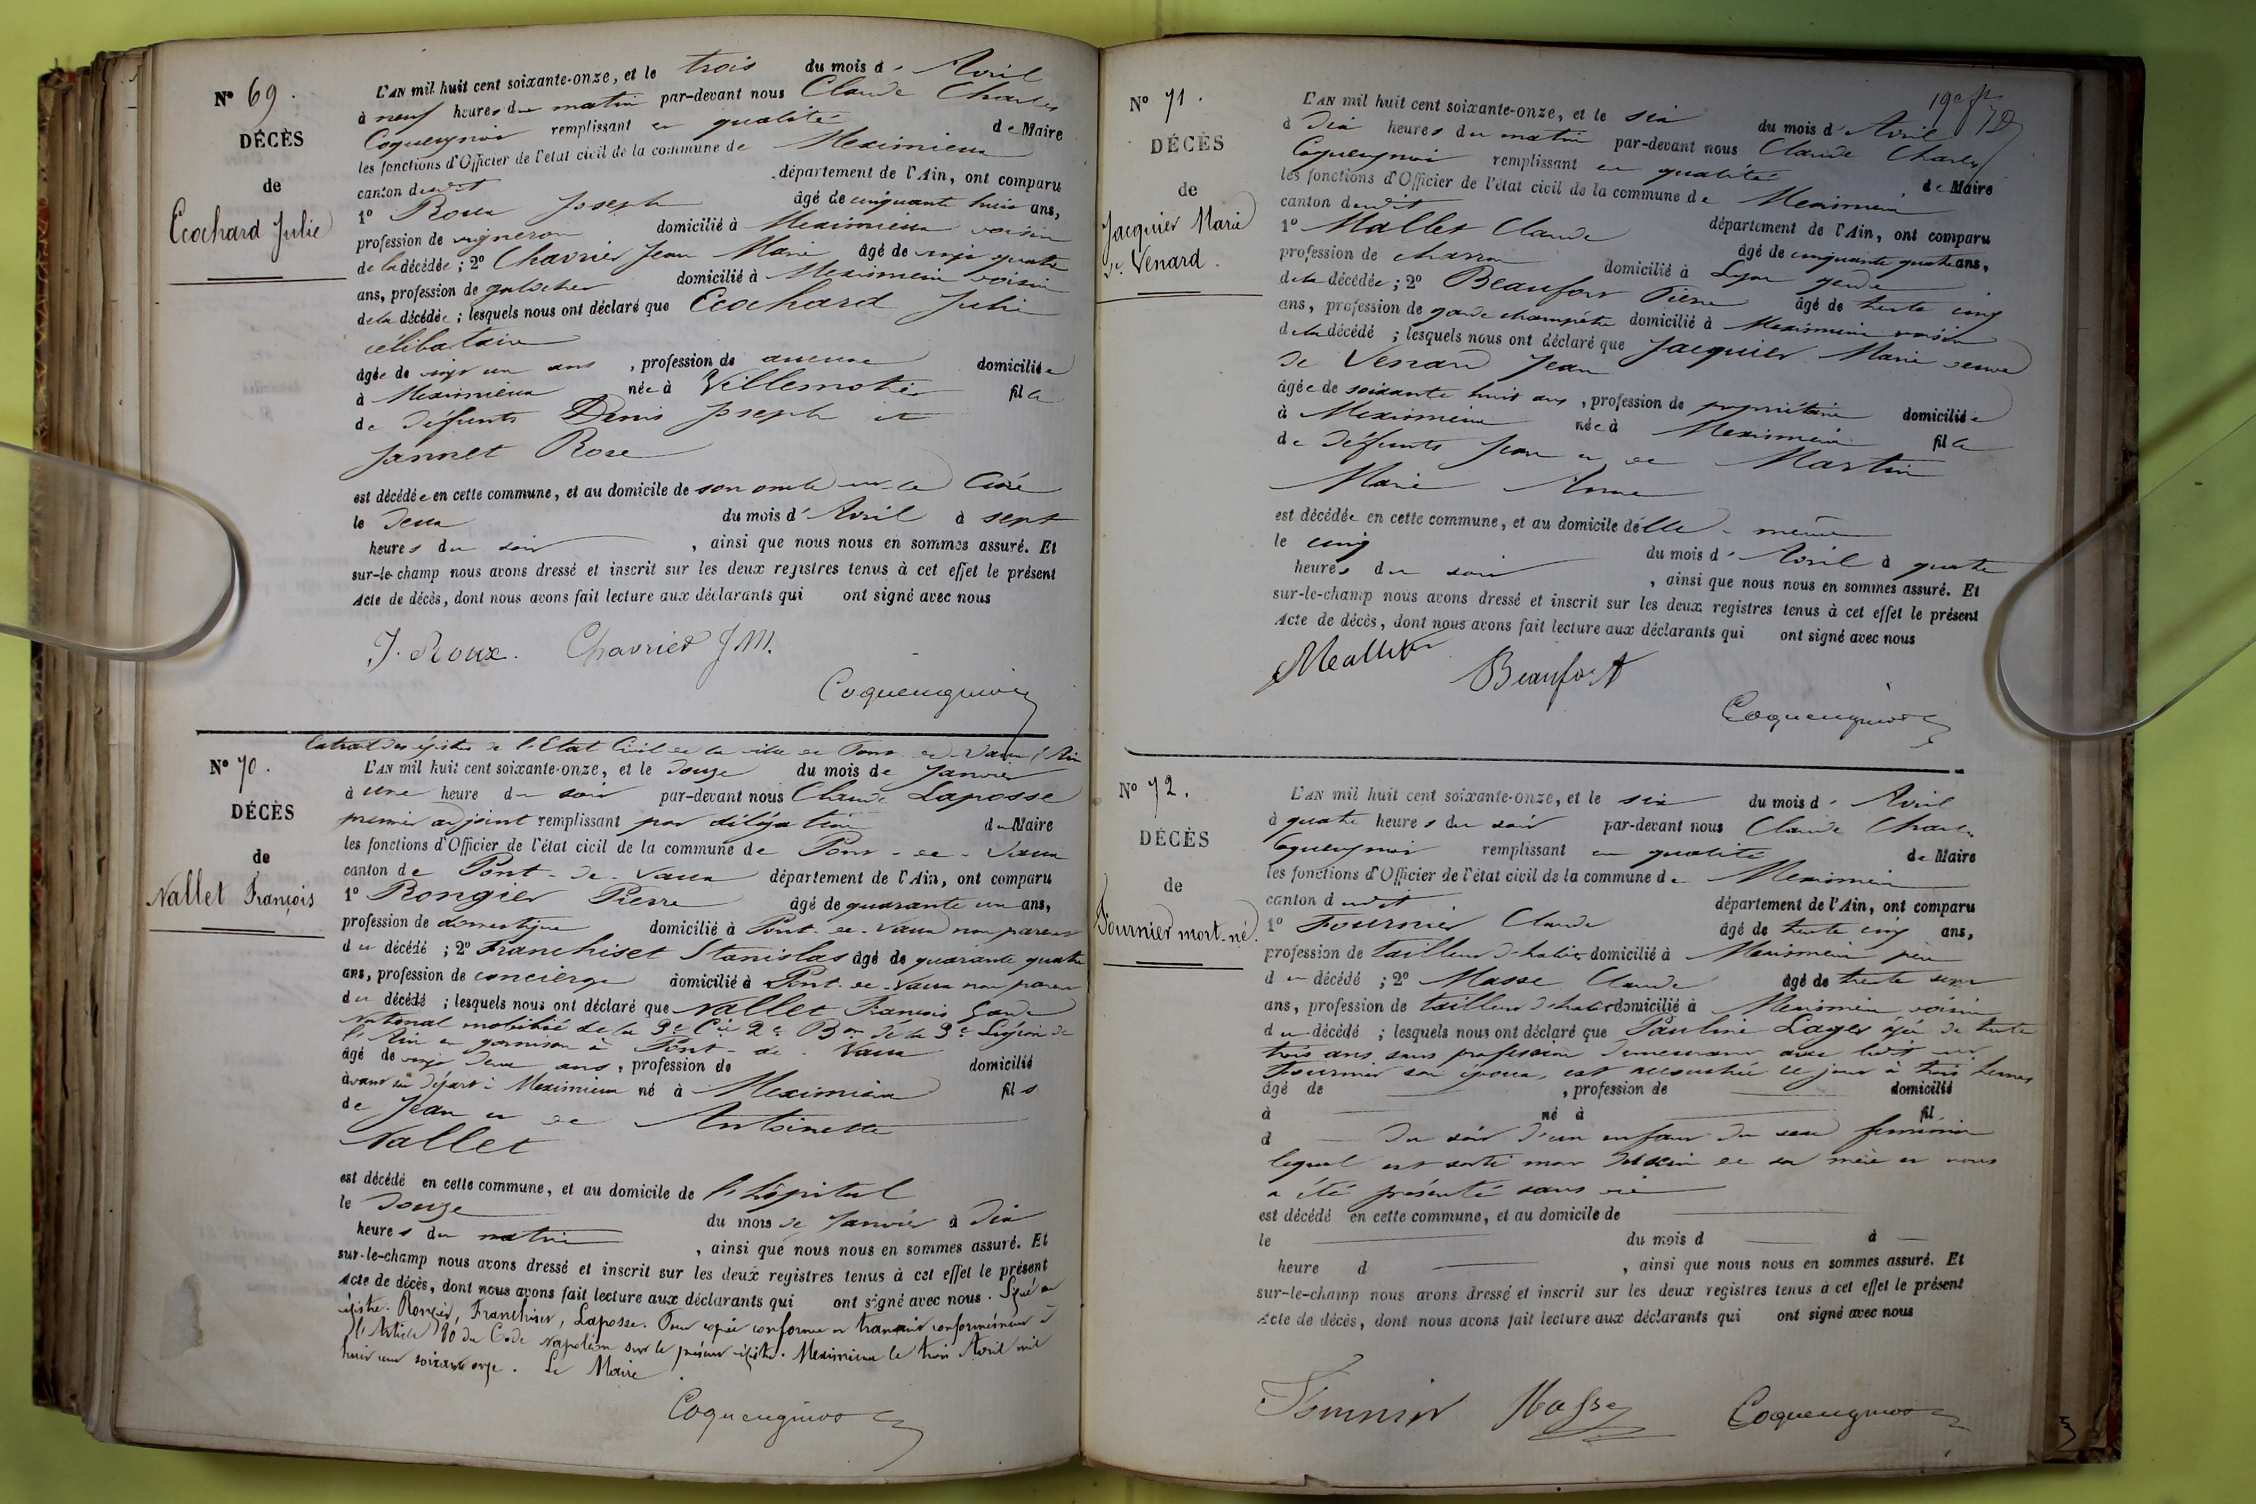 N° 69.
DÉCÈS
de
Ecochard Julie
L'AN mil huit cent soixante-onze, et le trois du mois d' Avril
à neuf heures du matin par-devant nous Claude Charles
Coquengniot remplissant en qualité de Maire
les fonctions d'Officier de l'état civil de la commune de Meximieux
canton dudit département de l'Ain, ont comparu
1° Roux Joseph âgé de cinquante huit ans,
profession de vigneron domicilié à Meximieux voisin
de la décédée ; 2° Chavrier Jean Marie âgé de vingt quatre
ans, profession de galocher domicilié à Meximieux voisin
de la décédée ; lesquels nous ont déclaré que Ecochard Julie
célibataire
âgée de vingt un ans , profession de aucune domiciliée
à Meximieux née à Villemotier fille
de défunts Denis Joseph et
Jannet Rose
est décédée en cette commune, et au domicile de son oncle Curé
le deux du mois d' Avril à sept
heures du soir , ainsi que nous nous en sommes assuré. Et
sur-le-champ nous avons dressé et inscrit sur les deux registres tenus à cet effet le présent
Acte de décès, dont nous avons fait lecture aux déclarants qui ont signé avec nous
J. Roux. Chavrier J M.
Coquengniot
N° 70.
DÉCÈS
de
Nallet François
Extrait des registres de l'Etat Civil de la ville de Pont-de-Vaux (Ain
L'AN mil huit cent soixante-onze, et le douze du mois de Janvier
à une heure du soir par-devant nous Claude Laposse
premier adjoint remplissant par délégation du Maire
les fonctions d'Officier de l'état civil de la commune de Pont-de-Vaux
canton de Pont-de-Vaux département de l'Ain, ont comparu
1° Rongier Pierre âgé de quarante un ans,
profession de domestique domicilié à Pont-de-Vaux non parent
du décédé ; 2° Franchiset Stanislas âgé de quarante quatre
ans, profession de concierge domicilié à Pont-de-Vaux non parent
du décédé ; lesquels nous ont déclaré que Nallet François Garde
National mobilisé de la 3e Cie 2e Bon de la 3e Légion de
l'Ain en garnison à Pont-de-Vaux
âgé de vingt deux ans , profession de domicilié
avant son départ à Meximieux né à Meximieux fils
de Jean et de Antoinette
Nallet
est décédé en cette commune, et au domicile de l'hôpital
le douze du mois de Janvier à dix
heures du matin , ainsi que nous nous en sommes assuré. Et
sur-le-champ nous avons dressé et inscrit sur les deux registres tenus à cet effet le présent
Acte de décès, dont nous avons fait lecture aux déclarants qui ont signé avec nous. Signé au
registre. Rongier, Franchiset, Laposse. Pour copie conforme et transcrit conformément à
l'Article 80 du Code Napoléon sur le présent registre. Meximieux le trois Avril mil
huit cent soixante onze. Le Maire
Coquengniot
N° 71.
DÉCÈS
de
Jacquier Marie
Ve. Venard.
L'AN mil huit cent soixante-onze, et le six du mois d' Avril
à dix heures du matin par-devant nous Claude Charles
Coquengniot remplissant en qualité de Maire
les fonctions d'Officier de l'état civil de la commune de Meximieux
canton dudit département de l'Ain, ont comparu
1° Mallet Claude âgé de cinquante quatre ans,
profession de charron domicilié à Lyon gendre
de la décédée ; 2° Beaufort Pierre âgé de trente cinq
ans, profession de garde champêtre domicilié à Meximieux voisin
de la décédé ; lesquels nous ont déclaré que Jacquier Marie veuve
de Venard Jean
âgée de soixante huit ans , profession de propriétaire domiciliée
à Meximieux née à Meximieux fille
de défunts Jean et de Martin
Marie Anne
est décédée en cette commune, et au domicile d'elle-même
le cinq du mois d' Avril à quatre
heures du soir , ainsi que nous nous en sommes assuré. Et
sur-le-champ nous avons dressé et inscrit sur les deux registres tenus à cet effet le présent
Acte de décès, dont nous avons fait lecture aux déclarants qui ont signé avec nous
Mallet
Beaufort
Coquengniot
N° 72.
DÉCÈS
de
Fournier mort-né.
L'AN mil huit cent soixante-onze, et le six du mois d' Avril
à quatre heures du soir par-devant nous Claude Charles
Coquengniot remplissant en qualité de Maire
les fonctions d'Officier de l'état civil de la commune de Meximieux
canton dudit département de l'Ain, ont comparu
1° Fournier Claude âgé de trente cinq ans,
profession de tailleur d'habits domicilié à Meximieux père
du décédé ; 2° Masse Claude âgé de trente sept
ans, profession de tailleur d'habits domicilié à Meximieux voisin
du décédé ; lesquels nous ont déclaré que Pauline Lager âgée de trente
trois ans sans profession demeurant avec ledit
Fournier son époux, est accouchée ce jour à trois heures
âgé de , profession de domicilié
à né à fil
d du soir d'un enfant du sexe féminin
lequel est sorti mort du sein de sa mère et nous
a été présenté sans vie
est décédé en cette commune, et au domicile de
le du mois d à
heure d , ainsi que nous nous en sommes assuré. Et
sur-le-champ nous avons dressé et inscrit sur les deux registres tenus à cet effet le présent
Acte de décès, dont nous avons fait lecture aux déclarants qui ont signé avec nous
Fournier Masse Coquengniot